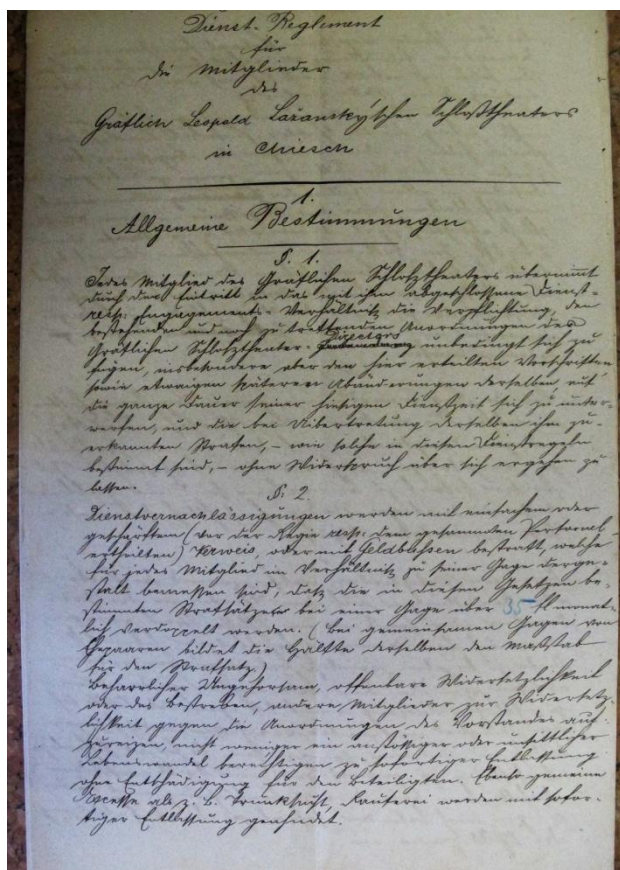 Dienst-Reglement
für
die Mitglieder
des
Gräflich Leopold Lažansky'schen Schloßtheaters
in Chiesch
1.
Allgemeine Bestimmungen
§. 1.
Jedes Mitglied des Gräflichen Schloßtheaters übernimmt
durch den Eintritt in das mit ihm abgeschlossene Dienst-
resp: Engagements-Verhältniß die Verpflichtung, den
bestehenden und noch zu treffenden Anordnungen der
Direction
Gräflichen Schloßtheater- unbedingt sich zu
fügen, insbesondere aber den hier erteilten Vorschriften
sowie etwaigen späteren Abänderungen derselben auf
die ganze Dauer seiner hiesigen Dienstzeit sich zu unter-
werfen, und die bei Übertretung derselben ihm zu-
erkannten Strafen, – wie solche in diesen Dienstregeln
bestimmt sind, – ohne Widerspruch über sich ergehen zu
lassen.
§. 2.
Dienstvernachlässigungen werden mit einfachem oder
geschärftem (vor der Regie resp: dem gesammten Personal
ertheilten) Verweis, oder mit Geldbussen bestraft, welche
für jedes Mitglied im Verhältniß zu seiner Gage derge-
stalt bemessen sind, daß die in diesen Gesetzen be-
stimmten Strafsätze bei einer Gage über 35 fl monat-
lich verdoppelt werden. (Bei gemeinsamen Gagen von
Ehepaaren bildet die Hälfte derselben den Maßstab
für den Strafsatz.)
Beharrlicher Ungehorsam, offenbare Widersetzlichkeit
oder das Bestreben, andere Mitglieder zur Widersetz-
lichkeit gegen die Anordnungen des Vorstandes auf-
zureizen, nicht weniger ein anstössiger oder unsittlicher
Lebenswandel berechtigen zu sofortiger Entlassung
ohne Entschädigung für den Beteiligten. Ebenso gemeine
Excesse als z. B. Trunksucht, Rauferei werden mit sofor-
tiger Entlassung geahndet.